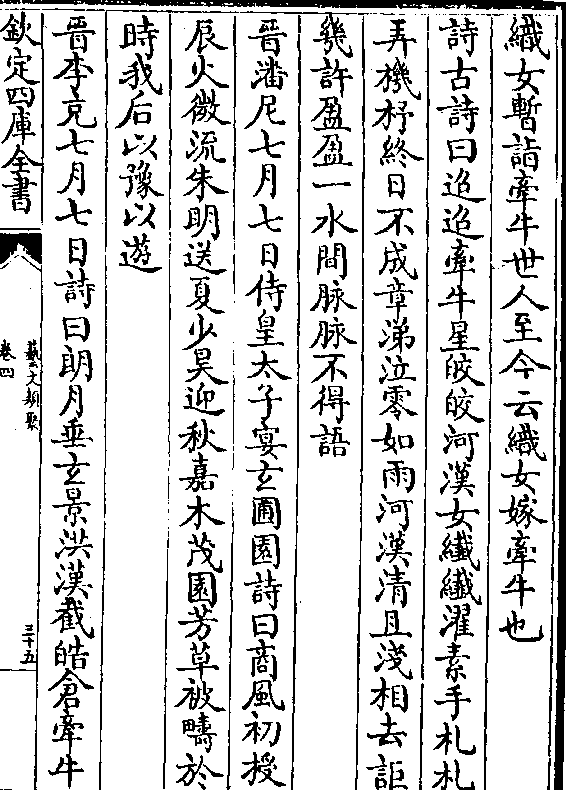 織女暫詣牽牛世人至今云織女嫁牽牛也
詩古詩曰迢迢牽牛星皎皎河漢女纎纎濯素手札札
弄機杼終日不成章涕泣零如雨河漢清且淺相去詎
幾許盈盈一水間脉脉不得語
晉潘尼七月七日侍皇太子宴玄圃園詩曰商風初授
辰火微流朱明送夏少昊迎秋嘉木茂園芳草被疇於
時我后以豫以遊
晉李充七月七日詩曰朗月垂玄景洪漢截皓倉牽牛
欽定四庫全書
藝文類聚
卷四
三十五